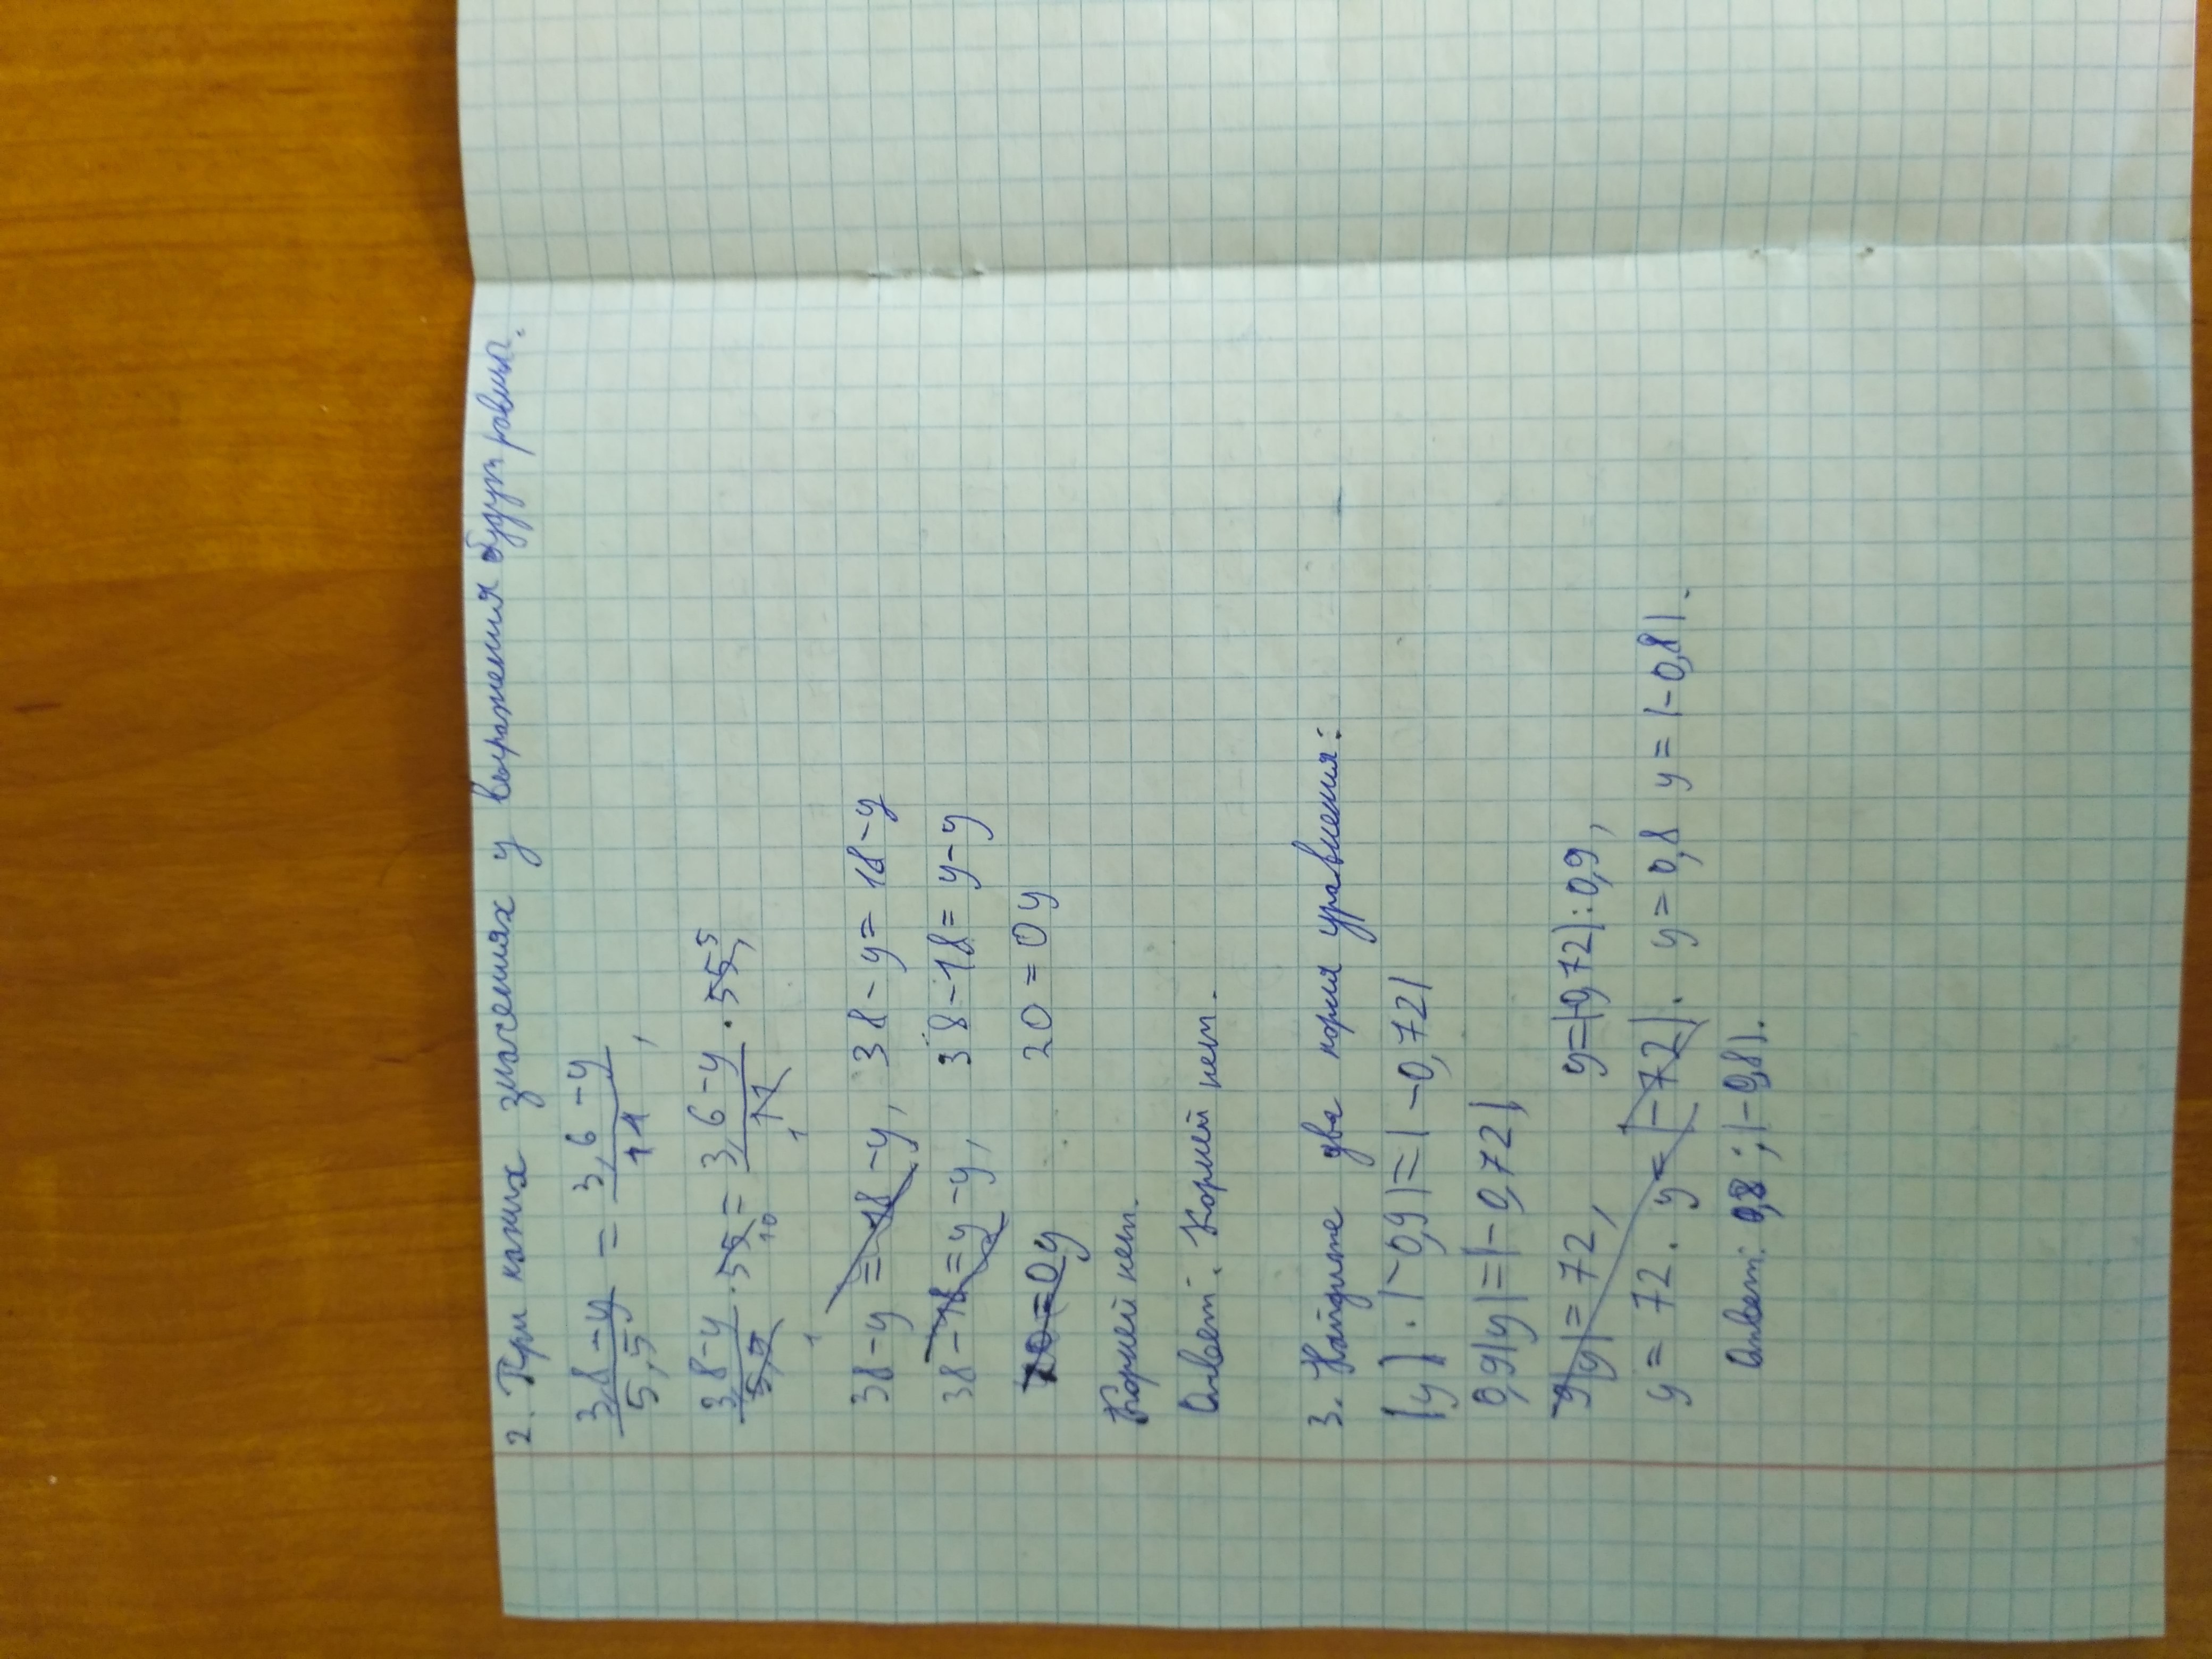 2. При каких значениях у выражения будут равны.
3,8-у/5,5 = 3,6-у/11,
3,8-у/5,5 · 55 = 3,6-у/11 · 55,
1 10 1 5
38-у = 18-у, 38-у = 18-у
38-18 = у-у, 38-18 = у-у
20 = 0у 20 = 0у
Корней нет.
Ответ: Корней нет.
3. Найдите два корня уравнения:
|у| · |-0,9| = |-0,72|
0,9|у| = |-0,72|
9|у| = 72, у=|-0,72|:0,9,
у = 72. у = |-72|. у = 0,8 у = |-0,8|.
Ответ: 0,8; |-0,8|.